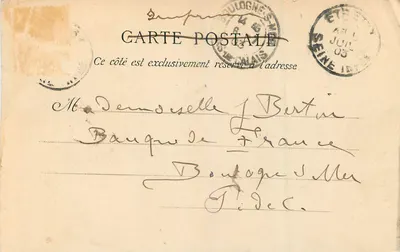 Imprimé
BOULOGNE-S-MER
PAS DE CALAIS
CARTE POSTALE
Ce côté est exclusivement réservé à l'adresse
Mademoiselle J Bertin
Banque de France
Boulogne s/ Mer
P. de C.